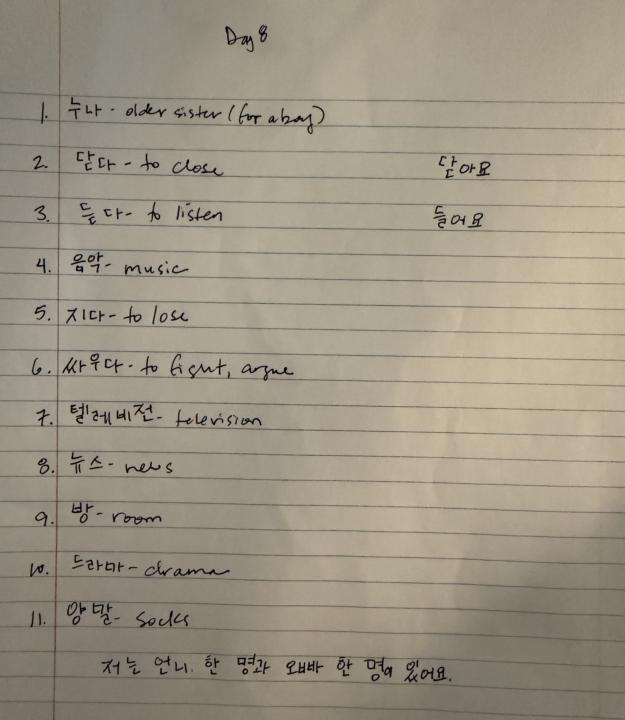 Day 8
1. 누나 - older sister (for a boy)
2. 닫다 - to close 닫아요
3. 듣다 - to listen 들어요
4. 음악 - music
5. 지다 - to lose
6. 싸우다 - to fight, argue
7. 텔레비전 - television
8. 뉴스 - news
9. 방 - room
10. 드라마 - drama
11. 양말 - socks
저는 언니 한 명과 오빠 한 명이 있어요.